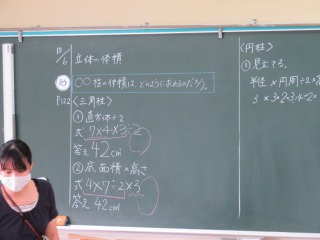 10/6 立体の体積
め ○○柱の体積は、どのように求めるのだろう。
P122 〈三角柱〉
① 直方体÷2
式 7×4×3÷2
答え 42cm³
② 底面積×高さ
式 4×7÷2×3
答え 42cm³
〈円柱〉
① 見立てる。
半径×円周÷2×高